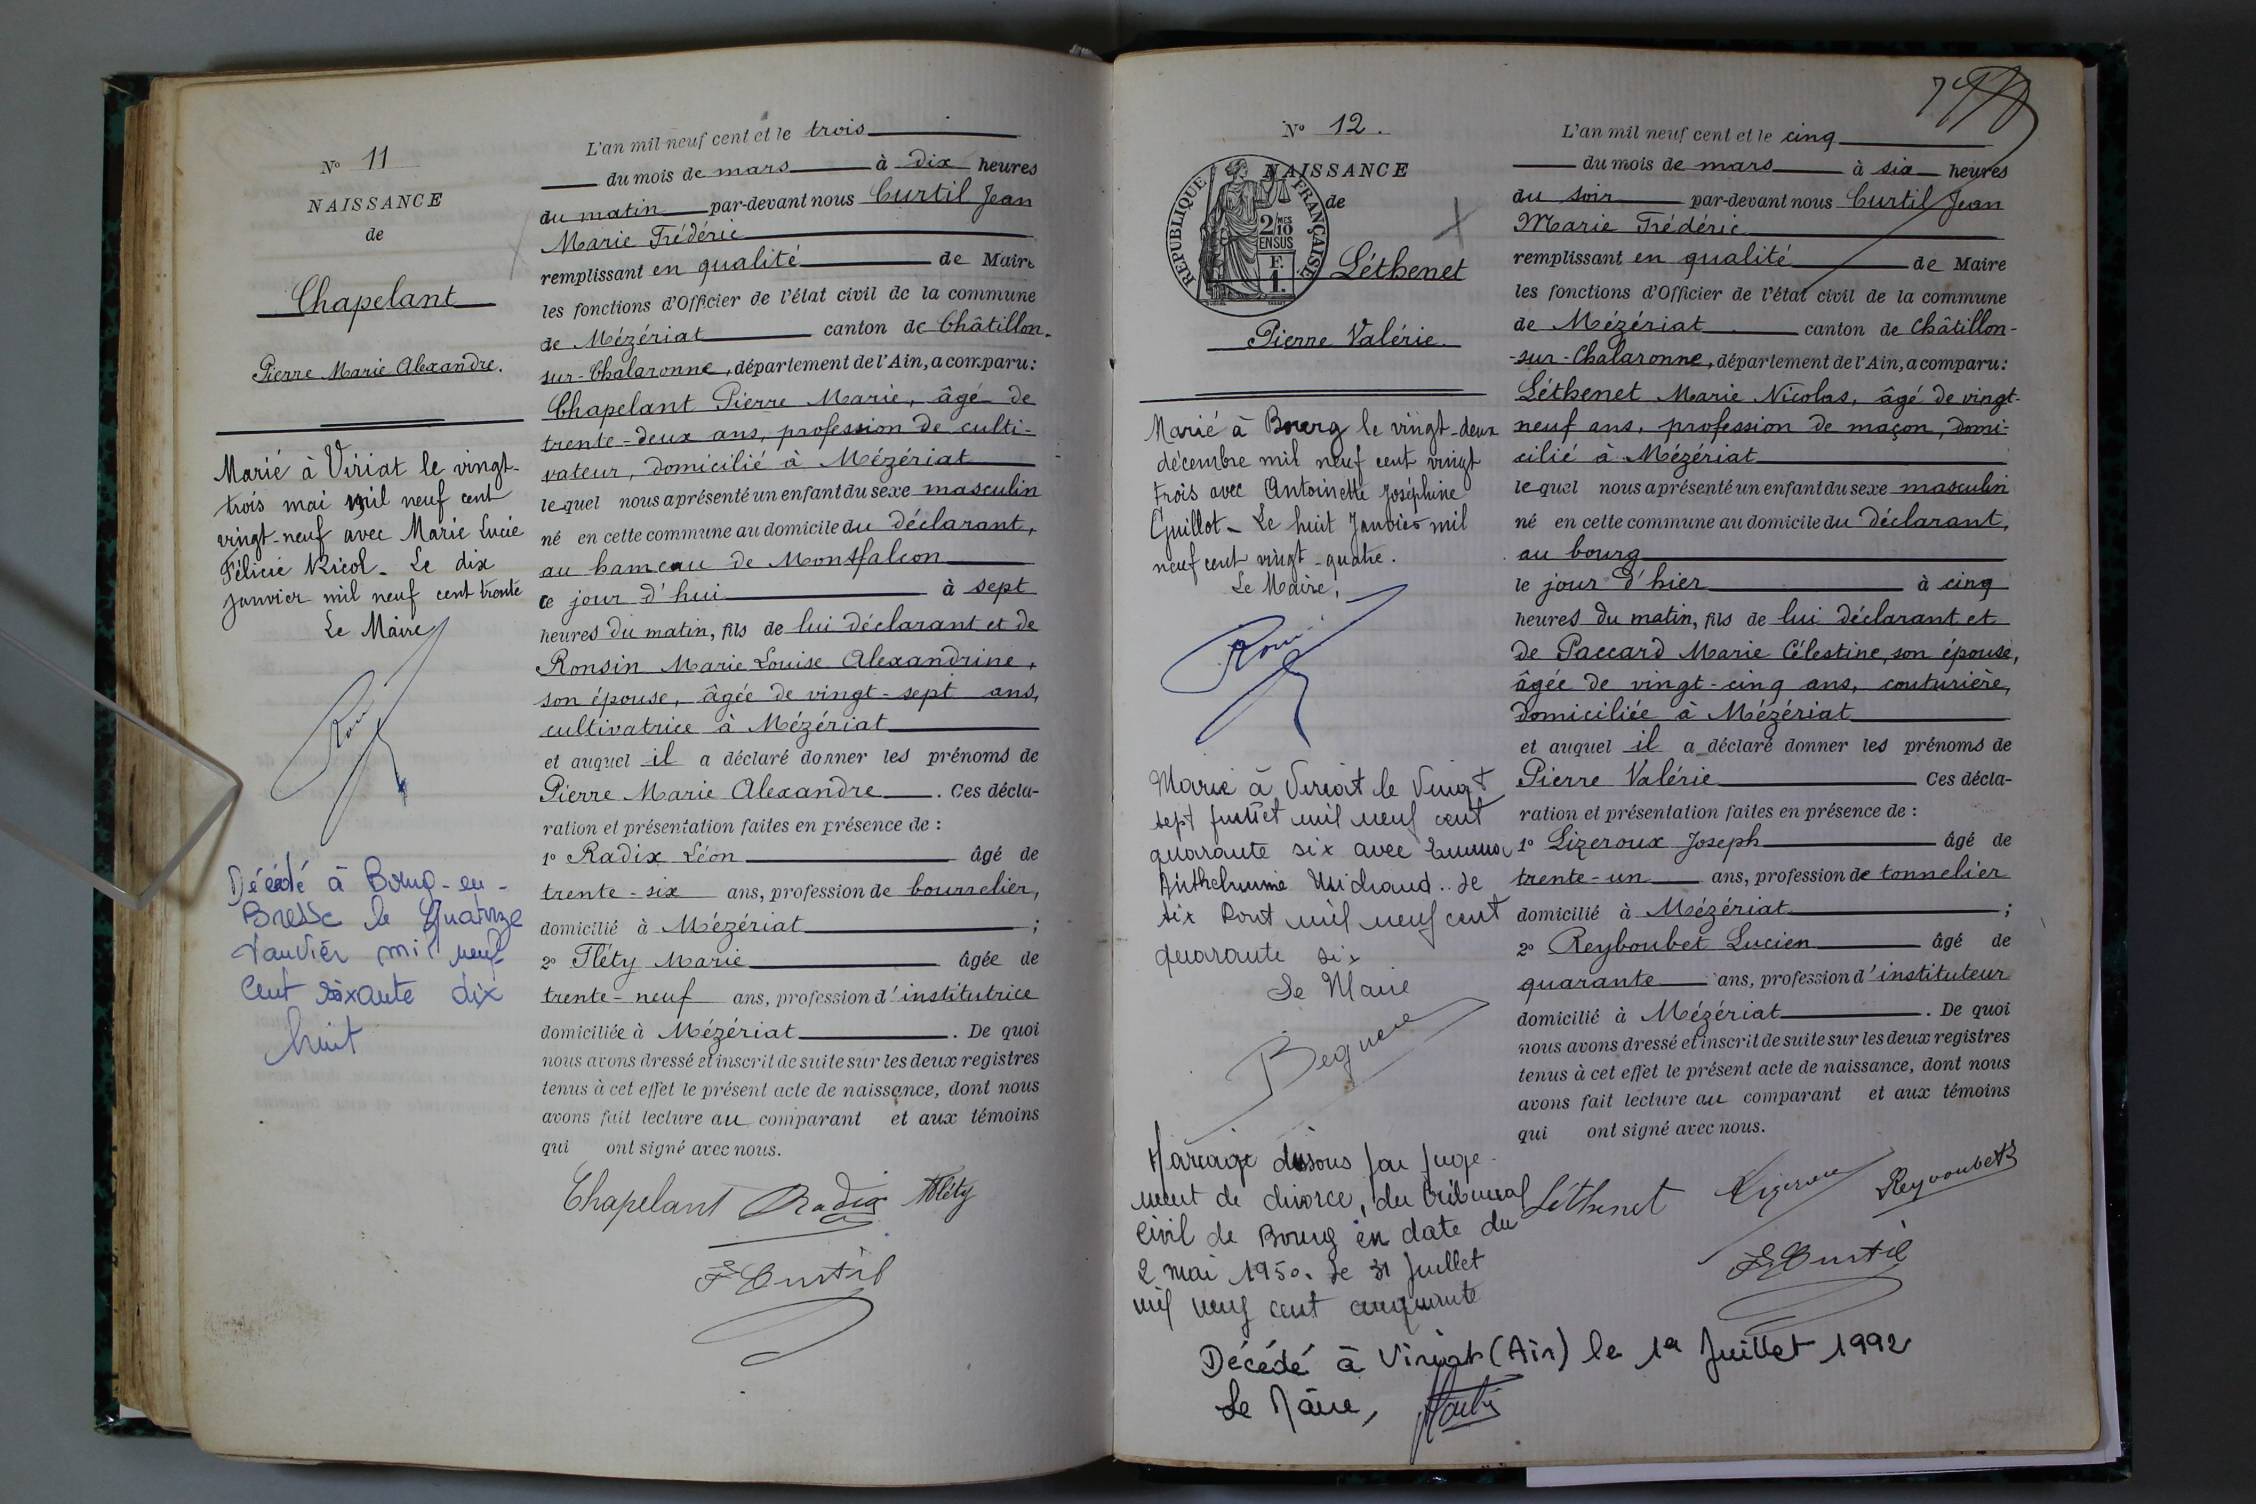 N° 11
NAISSANCE
de
Chapelant
Pierre Marie Alexandre.
Marié à Viriat le vingt-
trois mai mil neuf cent
vingt-neuf avec Marie Lucie
Félicie Nicol. Le dix
janvier mil neuf cent trente
Le Maire
Décédé à Bourg-en-
Bresse le quatorze
Janvier mil neuf
cent soixante dix
huit
L'an mil neuf cent et le trois
du mois de mars à dix heures
du matin par-devant nous Curtil Jean
Marie Frédéric
remplissant en qualité de Maire
les fonctions d'Officier de l'état civil de la commune
de Mézériat canton de Châtillon-
sur-Chalaronne, département de l'Ain, a comparu:
Chapelant Pierre Marie, âgé de
trente-deux ans, profession de culti-
vateur, domicilié à Mézériat
lequel nous a présenté un enfant du sexe masculin
né en cette commune au domicile du déclarant,
au hameau de Montfalcon
ce jour d'hui à sept
heures du matin, fils de lui déclarant et de
Ronsin Marie Louise Alexandrine,
son épouse, âgée de vingt-sept ans,
cultivatrice à Mézériat
et auquel il a déclaré donner les prénoms de
Pierre Marie Alexandre. Ces décla-
ration et présentation faites en présence de :
1° Radix Léon âgé de
trente-six ans, profession de bourrelier,
domicilié à Mézériat ;
2° Fléty Marie âgée de
trente-neuf ans, profession d'institutrice
domiciliée à Mézériat. De quoi
nous avons dressé et inscrit de suite sur les deux registres
tenus à cet effet le présent acte de naissance, dont nous
avons fait lecture au comparant et aux témoins
qui ont signé avec nous.
Chapelant Radix Fléty
F Curtil
7
N° 12.
NAISSANCE
de
RÉPUBLIQUE FRANÇAISE
2/10 MES
EN SUS
F.
1.
Léthenet
Pierre Valérie.
Marié à Bourg le vingt-deux
décembre mil neuf cent vingt
trois avec Antoinette Joséphine
Guillot. Le huit Janvier mil
neuf cent vingt-quatre.
Le Maire,
Marié à Viriat le Vingt
sept juillet mil neuf cent
quarante six avec Emma
Anthelmine Michaud. Le
six Août mil neuf cent
quarante six
Le Maire
Mariage dissous par juge-
ment de divorce, du tribunal
civil de Bourg en date du
2 mai 1950. Le 31 Juillet
mil neuf cent cinquante
Décédé à Viriat (Ain) le 1er Juillet 1992
Le Maire,
L'an mil neuf cent et le cinq
du mois de mars à six heures
du soir par-devant nous Curtil Jean
Marie Frédéric
remplissant en qualité de Maire
les fonctions d'Officier de l'état civil de la commune
de Mézériat canton de Châtillon-
-sur-Chalaronne, département de l'Ain, a comparu:
Léthenet Marie Nicolas, âgé de vingt-
neuf ans, profession de maçon, domi-
cilié à Mézériat
lequel nous a présenté un enfant du sexe masculin
né en cette commune au domicile du déclarant,
au bourg
le jour d'hier à cinq
heures du matin, fils de lui déclarant et
de Paccard Marie Célestine, son épouse,
âgée de vingt-cinq ans, couturière,
domiciliée à Mézériat
et auquel il a déclaré donner les prénoms de
Pierre Valérie Ces décla-
ration et présentation faites en présence de :
1° Lizeroux Joseph âgé de
trente-un ans, profession de tonnelier
domicilié à Mézériat ;
2° Reyboubet Lucien âgé de
quarante ans, profession d'instituteur
domicilié à Mézériat. De quoi
nous avons dressé et inscrit de suite sur les deux registres
tenus à cet effet le présent acte de naissance, dont nous
avons fait lecture au comparant et aux témoins
qui ont signé avec nous.
Léthenet Lizeroux Reyboubet
F Curtil